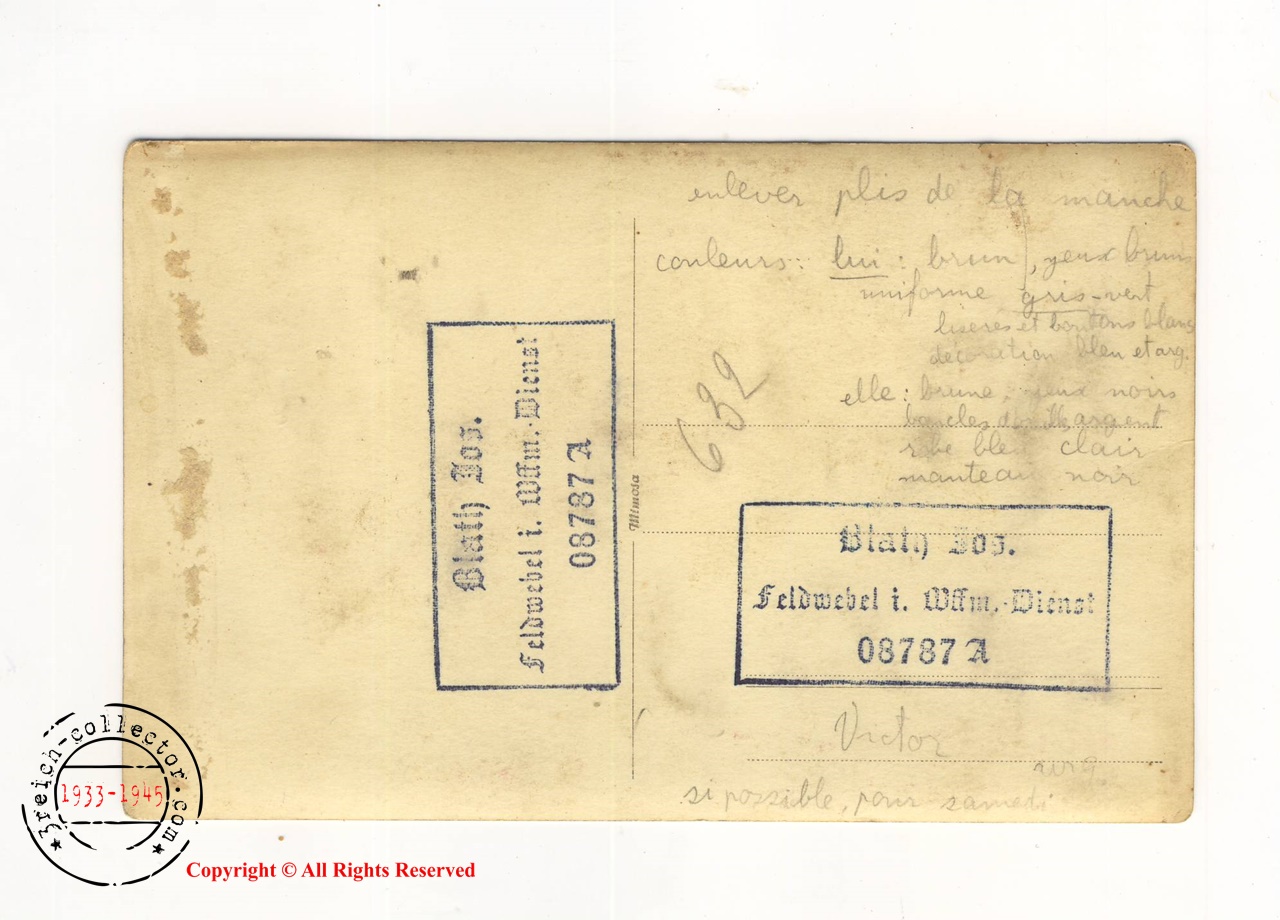 enlever plis de la manche
couleurs: lui: brun, yeux bruns
uniforme gris-vert
liserés et boutons blancs
décoration bleu et arg.
elle: brune, yeux noirs
boucles argent
robe bleu clair
manteau noir
632
Mimosa
Blath Jos.
Feldwebel i. Wffm.-Dienst
08787 A
Blath Jos.
Feldwebel i. Wffm.-Dienst
08787 A
Victor
si possible, pour samedi
3reich-collector.com
1933-1945
Copyright © All Rights Reserved